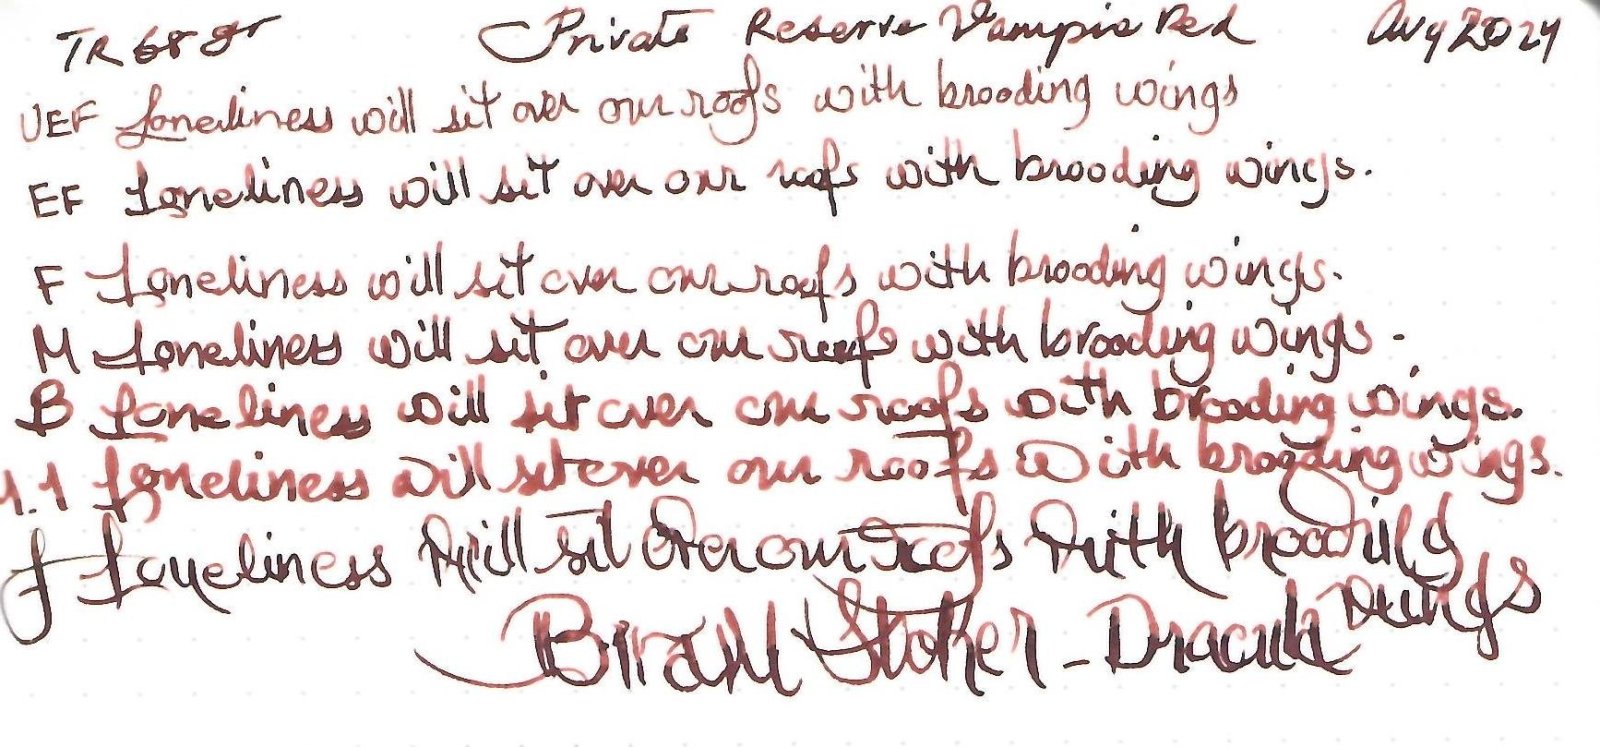 TR 68 gr Private Reserve Vampire Red Aug 2024
UEF Loneliness will sit over our roofs with brooding wings
EF Loneliness will sit over our roofs with brooding wings.
F Loneliness will sit over our roofs with brooding wings.
M Loneliness will sit over our roofs with brooding wings.
B Loneliness will sit over our roofs with brooding wings.
1.1 Loneliness will sit over our roofs with brooding wings.
f Loneliness will sit over our roofs with brooding wings
Bram Stoker - Dracula